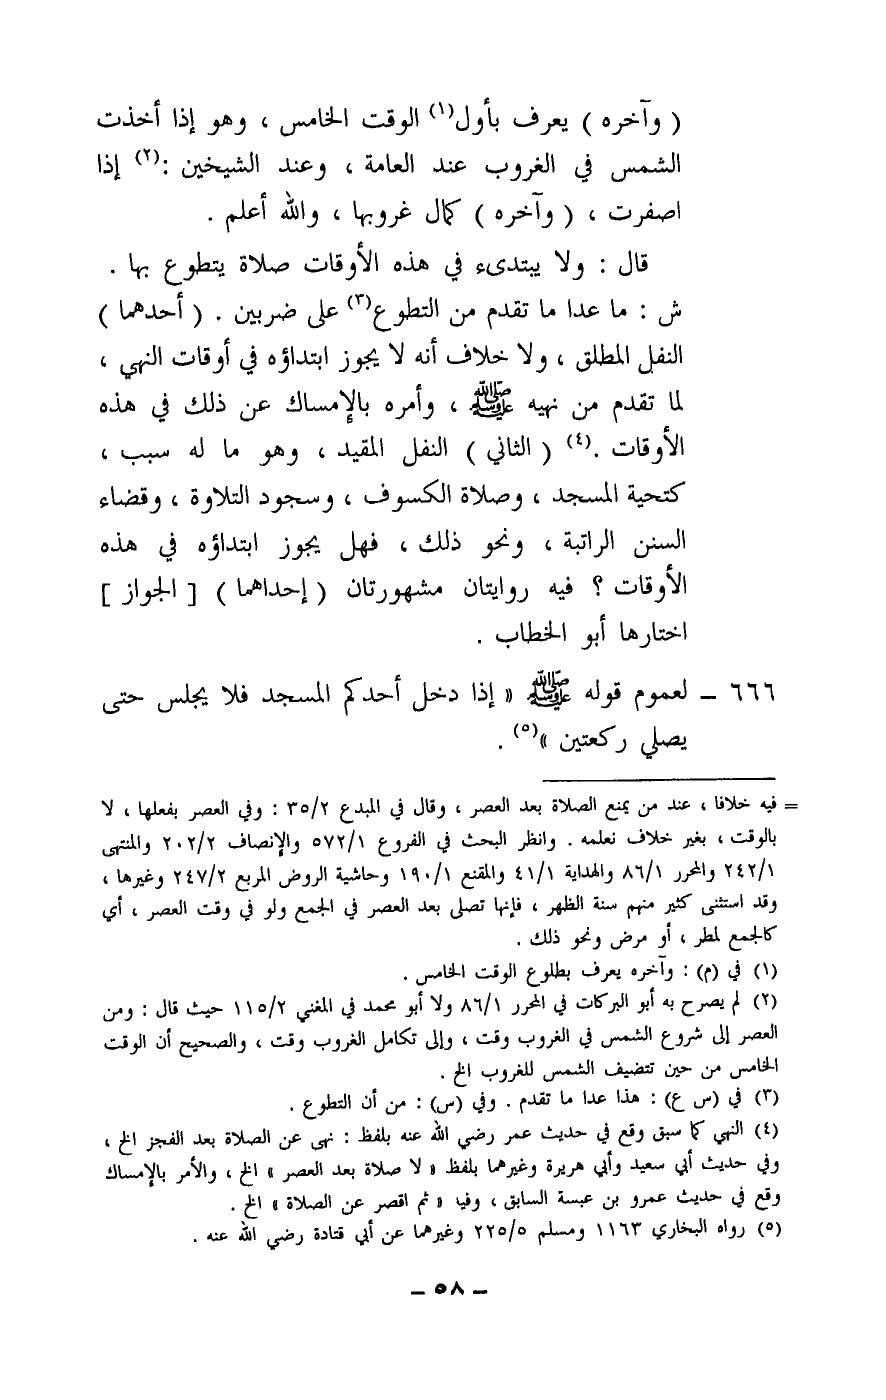 ( وآخره ) يعرف بأول(١) الوقت الخامس ، وهو إذا أخذت
الشمس في الغروب عند العامة ، وعند الشيخين :(٢) إذا
اصفرت ، ( وآخره ) كمال غروبها ، والله أعلم .
قال : ولا يبتدىء في هذه الأوقات صلاة يتطوع بها .
ش : ما عدا ما تقدم من التطوع(٣) على ضربين . ( أحدهما )
النفل المطلق ، ولا خلاف أنه لا يجوز ابتداؤه في أوقات النهي ،
لما تقدم من نهيه ﷺ ، وأمره بالإمساك عن ذلك في هذه
الأوقات .(٤) ( الثاني ) النفل المقيد ، وهو ما له سبب ،
كتحية المسجد ، وصلاة الكسوف ، وسجود التلاوة ، وقضاء
السنن الراتبة ، ونحو ذلك ، فهل يجوز ابتداؤه في هذه
الأوقات ؟ فيه روايتان مشهورتان ( إحداهما ) [ الجواز ]
اختارها أبو الخطاب .
٦٦٦ – لعموم قوله ﷺ « إذا دخل أحدكم المسجد فلا يجلس حتى
يصلي ركعتين »(٥) .
= فيه خلافا ، عند من يمنع الصلاة بعد العصر ، وقال في المبدع ٣٥/٢ : وفي العصر بفعلها ، لا
بالوقت ، بغير خلاف نعلمه . وانظر البحث في الفروع ٥٧٢/١ والإنصاف ٢٠٢/٢ والمنتهى
٢٤٢/١ والمحرر ٨٦/١ والهداية ٤١/١ والمقنع ١٩٠/١ وحاشية الروض المربع ٢٤٧/٢ وغيرها ،
وقد استثنى كثير منهم سنة الظهر ، فإنها تصلى بعد العصر في الجمع ولو في وقت العصر ، أي
كالجمع لمطر ، أو مرض ونحو ذلك .
(١) في (م) : وآخره يعرف بطلوع الوقت الخامس .
(٢) لم يصرح به أبو البركات في المحرر ٨٦/١ ولا أبو محمد في المغني ١١٥/٢ حيث قال : ومن
العصر إلى شروع الشمس في الغروب وقت ، وإلى تكامل الغروب وقت ، والصحيح أن الوقت
الخامس من حين تتضيف الشمس للغروب الخ .
(٣) في (س ع) : هذا عدا ما تقدم . وفي (س) : من أن التطوع .
(٤) النهي كما سبق وقع في حديث عمر رضي الله عنه بلفظ : نهى عن الصلاة بعد الفجز الخ ،
وفي حديث أبي سعيد وأبي هريرة وغيرهما بلفظ « لا صلاة بعد العصر » الخ ، والأمر بالإمساك
وقع في حديث عمرو بن عبسة السابق ، وفيا « ثم اقصر عن الصلاة » الخ .
(٥) رواه البخاري ١١٦٣ ومسلم ٢٢٥/٥ وغيرهما عن أبي قتادة رضي الله عنه .
– ٥٨ –